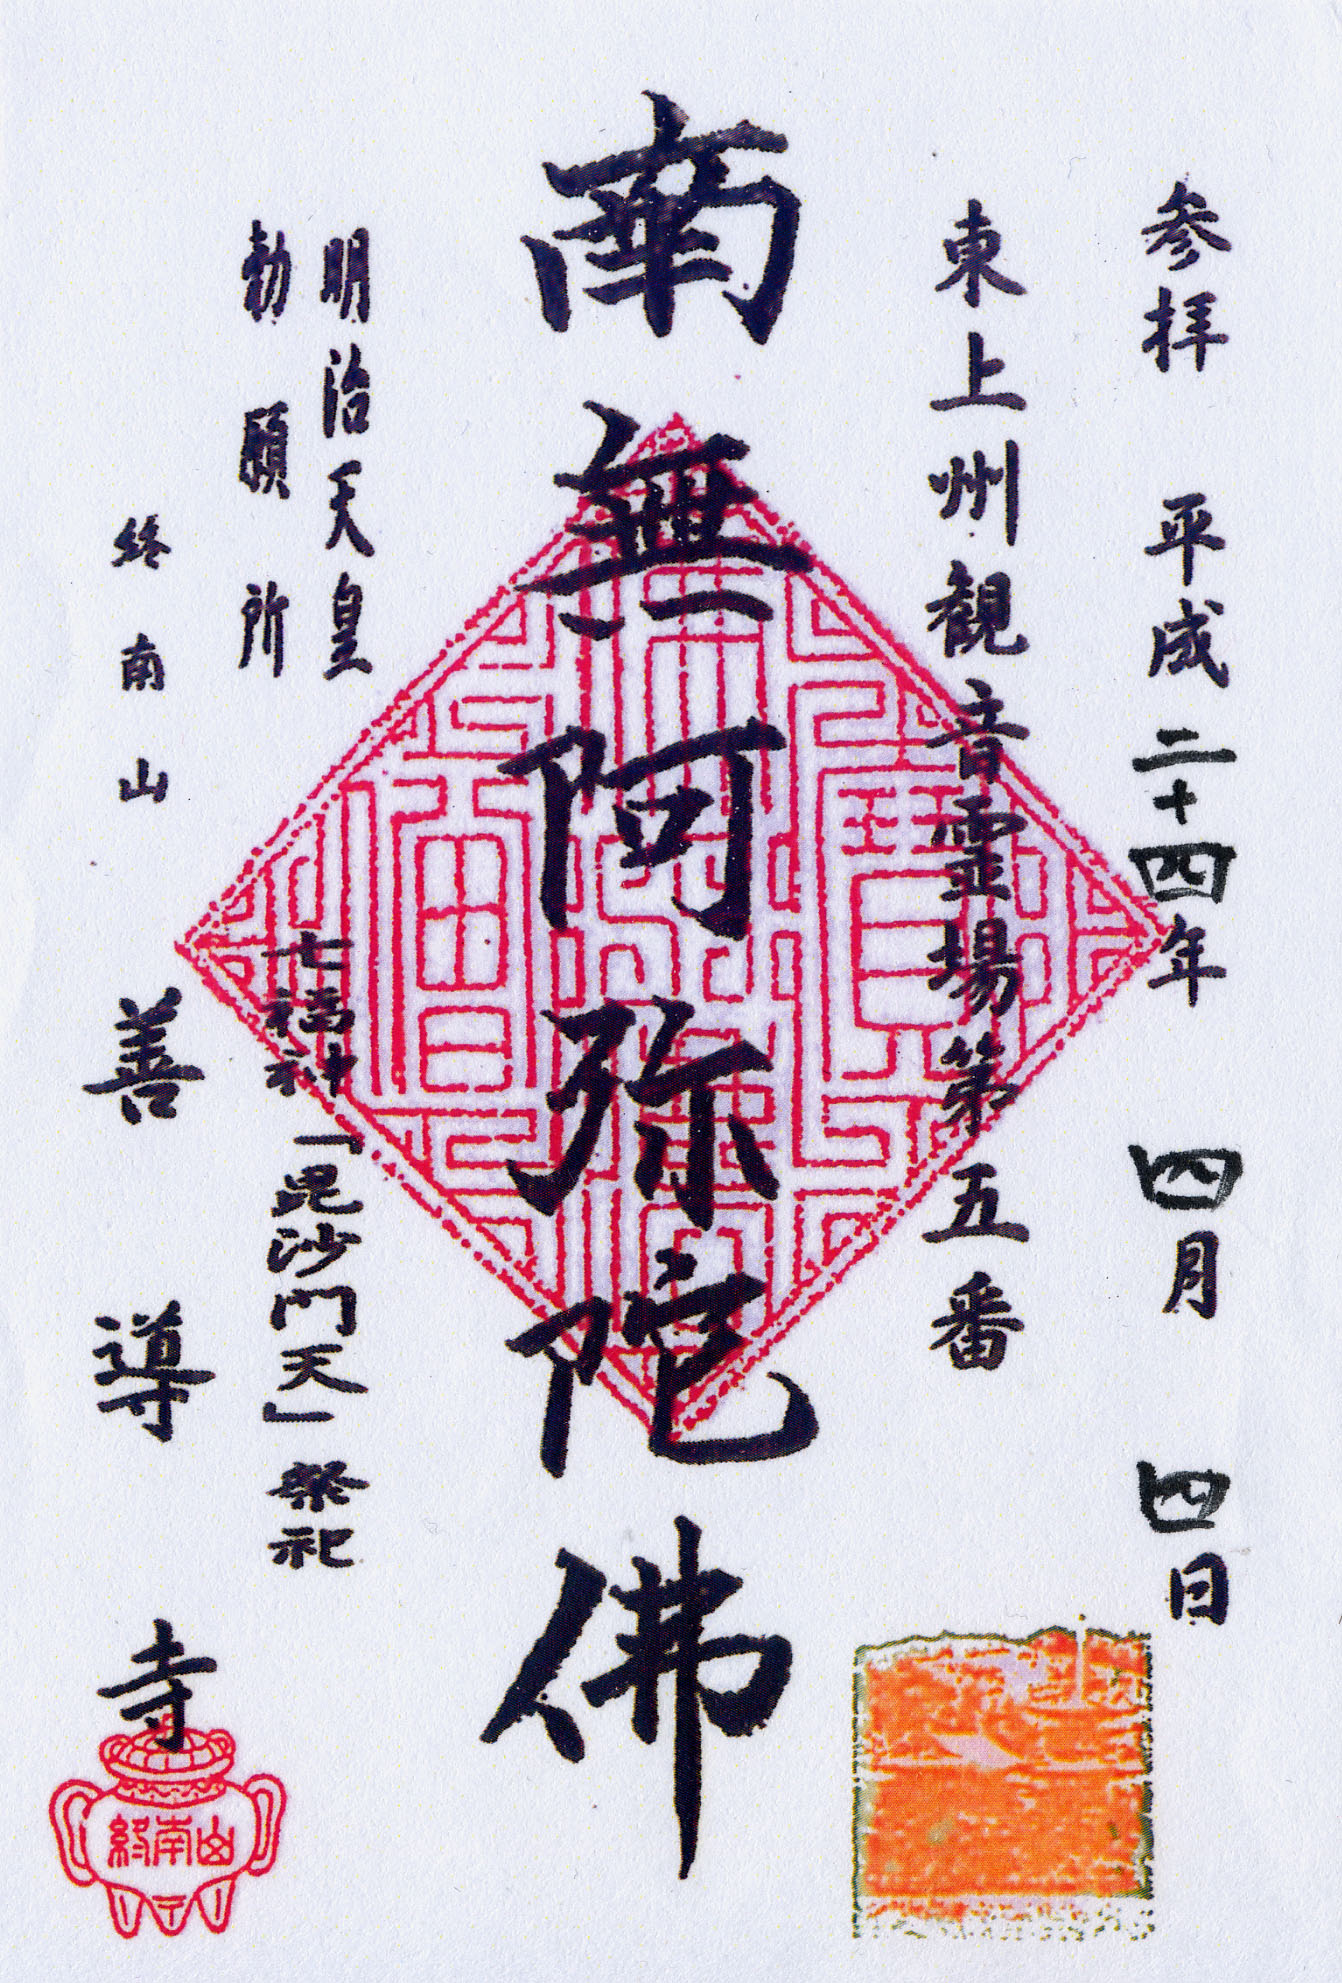 参拝 平成二十四年 四月 四日
東上州観音霊場第五番
南無阿弥陀佛
明治天皇
勅願所
七福神「毘沙門天」祭祀
終南山
善導寺
終南山